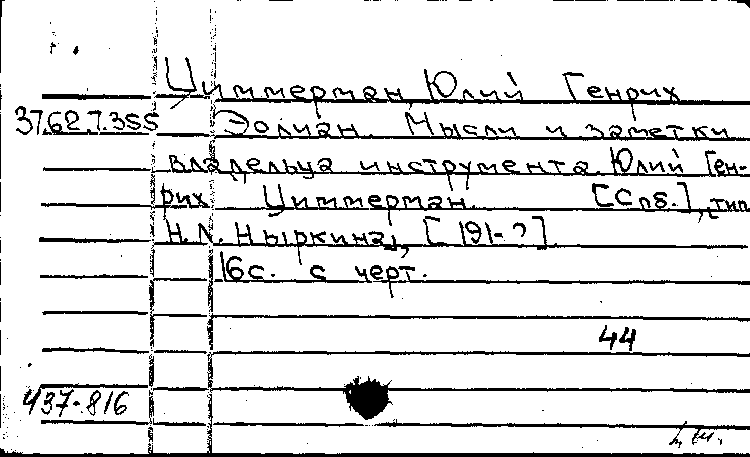 Циммерман, Юлий Генрих
37.62.7.355 Эолиан. Мысли и заметки
владельца инструмента. Юлий Ген-
рих Циммерман. [Спб.], [тип.
Н. Л. Ныркина], [191-?].
16 с. с черт.
44
437-816